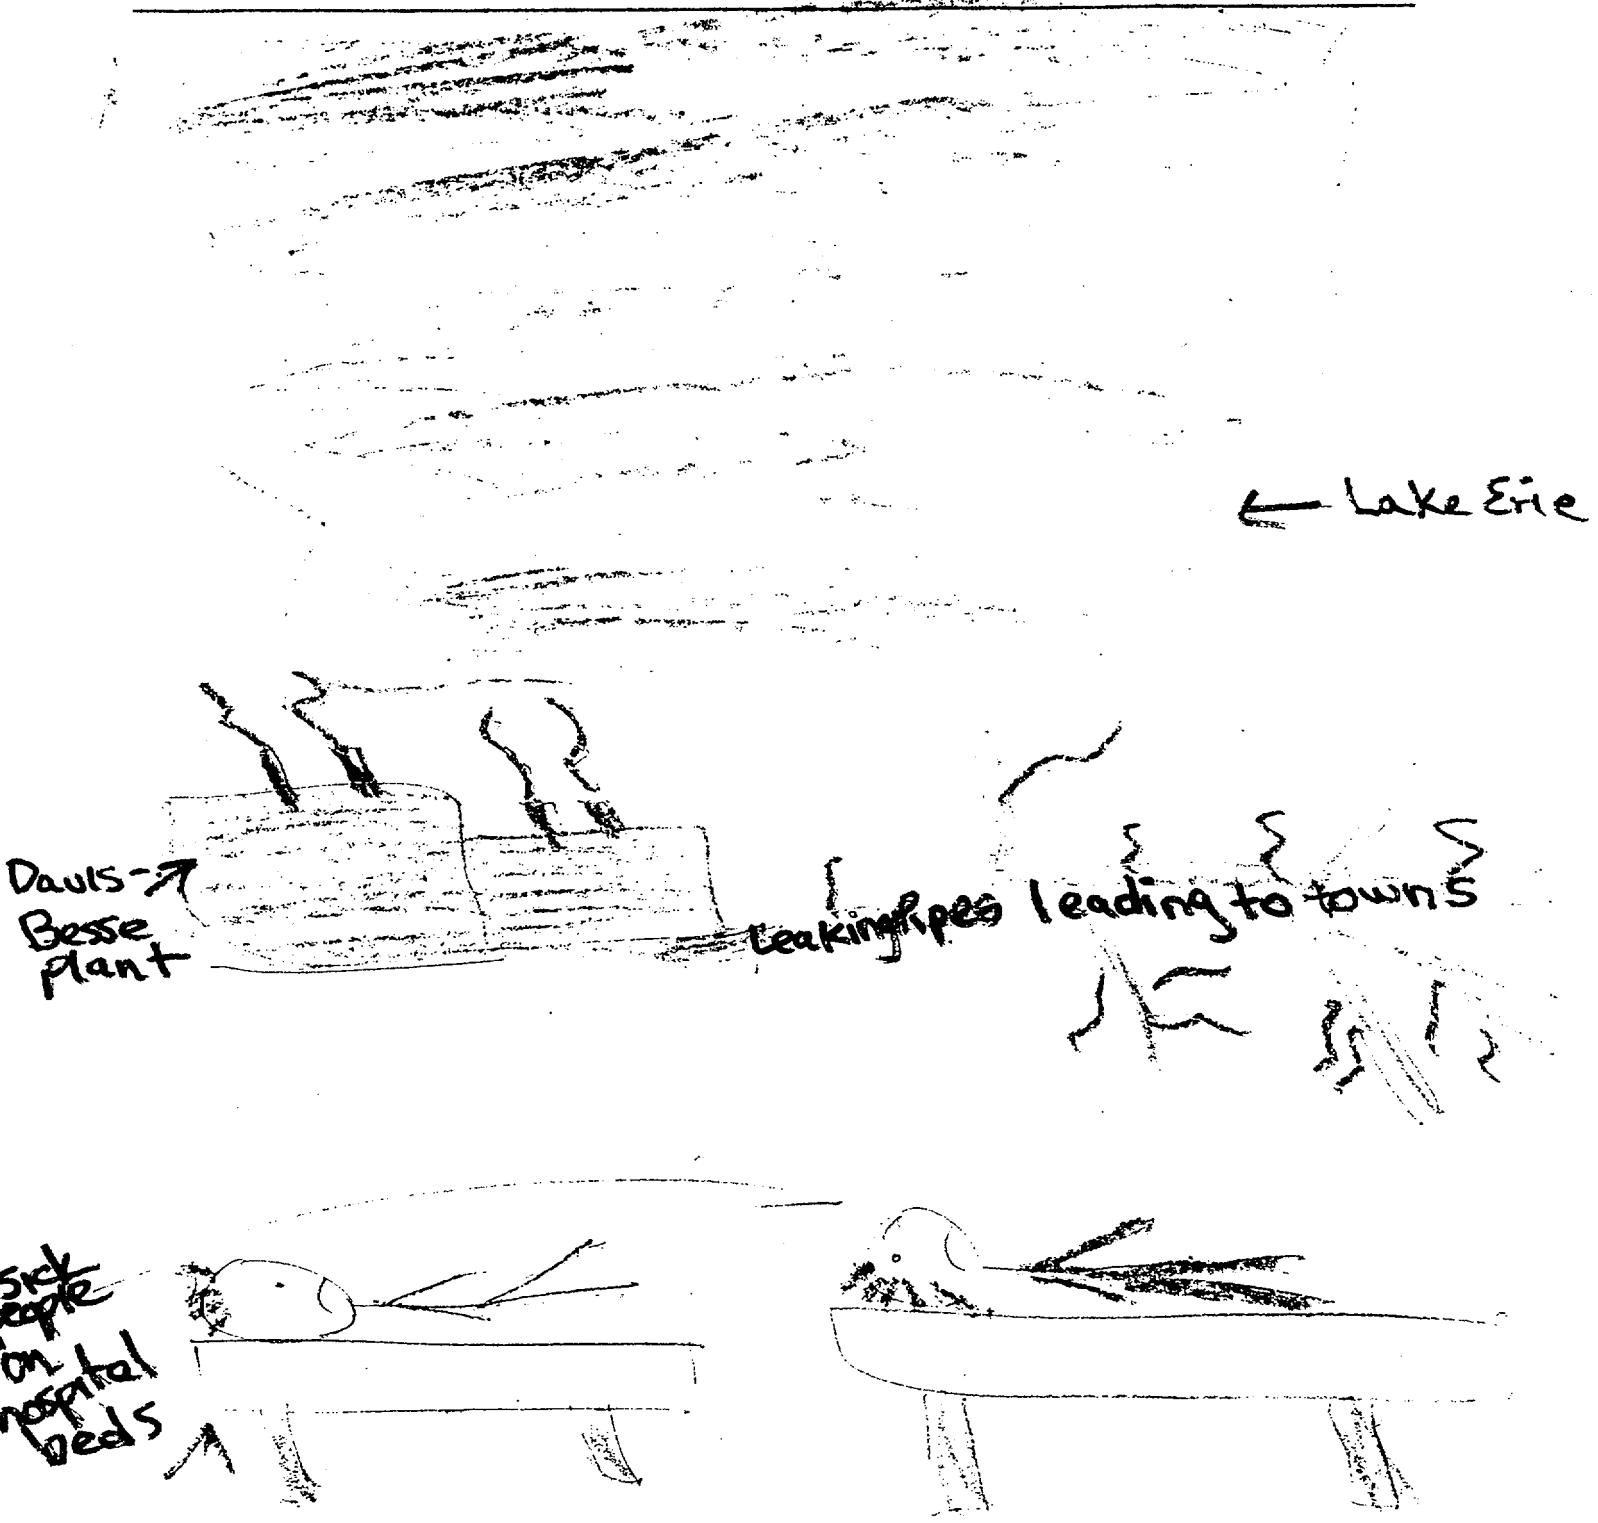 Lake Erie
Davis-
Besse
plant
Leaking Pipes leading to towns
sick
people
on
hospital
beds